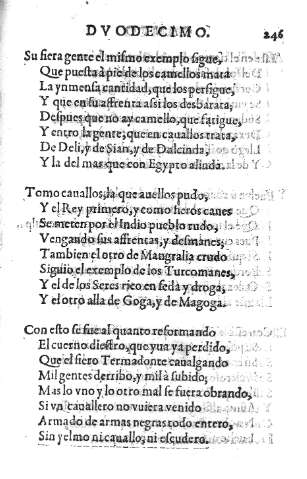 DVODECIMO. 246
Su fiera gente el mismo exemplo sigue,
Que puesta à pie de los camellos mata
La ynmensa cantidad, que los persigue,
Y que en su affrenta assi los desbarata;
Despues que no ay camello, que fatigue,
Y entrò la gente; que en cauallos trata,
De Deli, y de Sian, y de Dalcinda,
Y la del mas que con Egypto alinda.
Tomo cauallos, la que auellos pudo,
Y el Rey primero, y como heròs canes
Se meten por el Indio pueblo rudo,
Vengando sus affrentas, y desmanes;
Tambien el otro de Mangralia crudo
Siguio el exemplo de los Turcomanes,
Y el de los Seres rico en seda y droga,
Y el otro alla de Goga, y de Magoga.
Con esto se fue al quanto reformando
El cuerno diestro, que yua ya perdido,
Que el fiero Termadonte caualgando
Mil gentes derribo, y mil à subido;
Mas lo vno y lo otro mal se fuera obrando,
Si vn cauallero no vuiera venido
Armado de armas negras todo entero,
Sin yelmo ni cauallo, ni escudero.